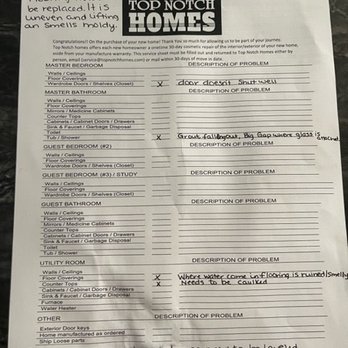 be replaced. It is
uneven and lifting
an smells moldy.
TOP NOTCH
HOMES
Congratulations!! On the purchase of your new home!! Thank You so much for allowing us to be part of your journey.
Top Notch homes offers each new homeowner a onetime 30-day cosmetic repair of the interior/exterior of your new home,
aside from your manufacture warranty. This service sheet must be filled out and returned to Top Notch Homes either by
person, email (service@topnotchhomes.com) or mail within 30-days of move in date.
MASTER BEDROOM DESCRIPTION OF PROBLEM
Walls / Ceilings
Floor Coverings
Wardrobe Doors / Shelves (Closet) X door doesn't shut well
MASTER BATHROOM DESCRIPTION OF PROBLEM
Walls / Ceilings
Floor Coverings
Mirrors / Medicine Cabinets
Counter Tops
Cabinets / Cabinet Doors / Drawers
Sink & Faucet / Garbage Disposal
Toilet
Tub / Shower X Grout falling out, Big Gap where glass is
GUEST BEDROOM (#2) DESCRIPTION OF PROBLEM
Walls / Ceilings
Floor Coverings
Wardrobe Doors / Shelves (Closet)
GUEST BEDROOM (#3) / STUDY DESCRIPTION OF PROBLEM
Walls / Ceilings
Floor Coverings
Wardrobe Doors / Shelves (Closet)
GUEST BATHROOM DESCRIPTION OF PROBLEM
Walls / Ceilings
Floor Coverings
Mirrors / Medicine Cabinets
Counter Tops
Cabinets / Cabinet Doors / Drawers
Sink & Faucet / Garbage Disposal
Toilet
Tub / Shower
UTILITY ROOM DESCRIPTION OF PROBLEM
Walls / Ceilings
Floor Coverings X Where water come in flooring is ruined/smelly
Counter Tops X Needs to be caulked
Cabinets / Cabinet Doors / Drawers
Sink & Faucet / Garbage Disposal
Furnace
Water Heater
OTHER DESCRIPTION OF PROBLEM
Exterior Door keys
Home manufactured as ordered
Ship Loose parts